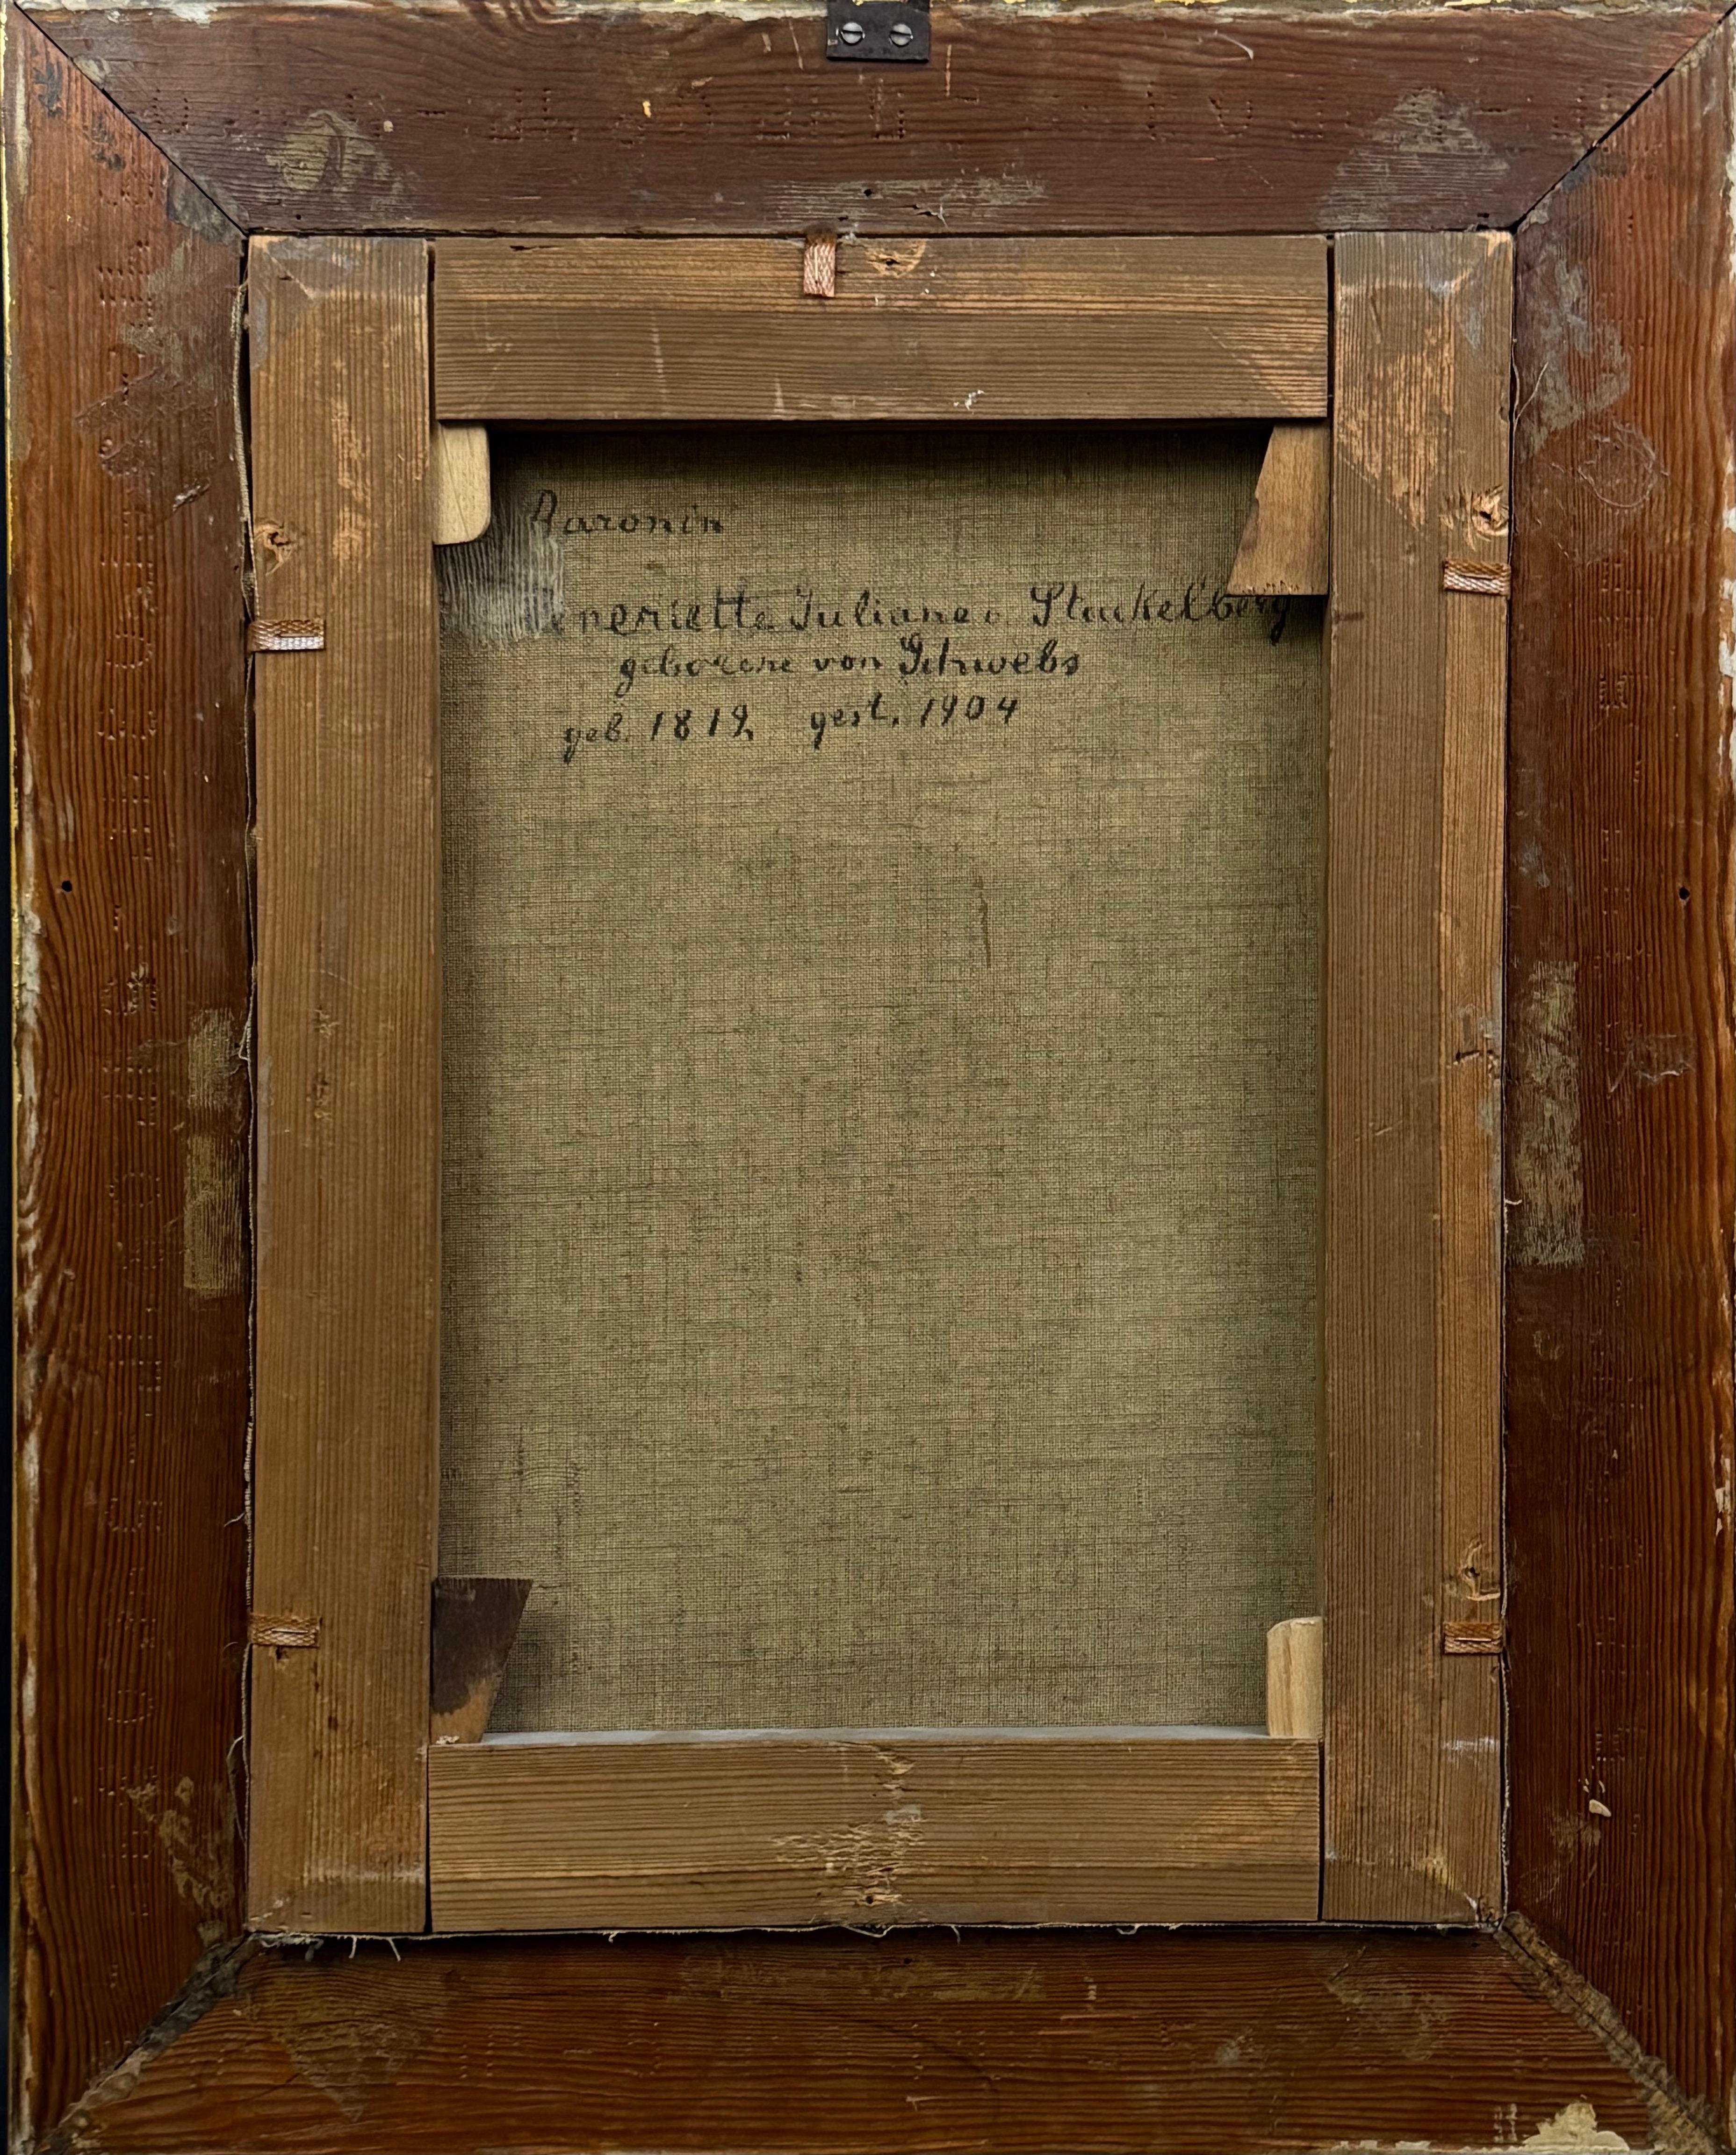 Baronin
Heneriette Juliane v. Stackelberg
geborene von Schwebs
geb. 1819, gest. 1904